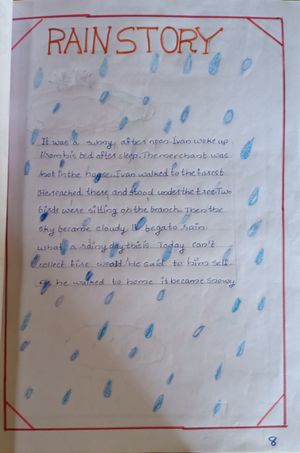 RAIN STORY
It was a sunny afternoon Ivan woke up
from his bed after sleep. The merchant was
foot in the house. Ivan walked to the forest
He reached there and stood under the tree. Two
birds were sitting on the branch. Then the
sky became cloudy. It began to rain
what a rainy day this is. Today can't
collect fire wood. He said to him self
he walked to home it became snowy
8